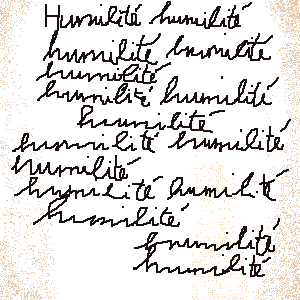 Humilité humilité
humilité humilité
humilité
humilité humilité
humilité
humilité humilité
humilité
humilité humilité
humilité
humilité
humilité